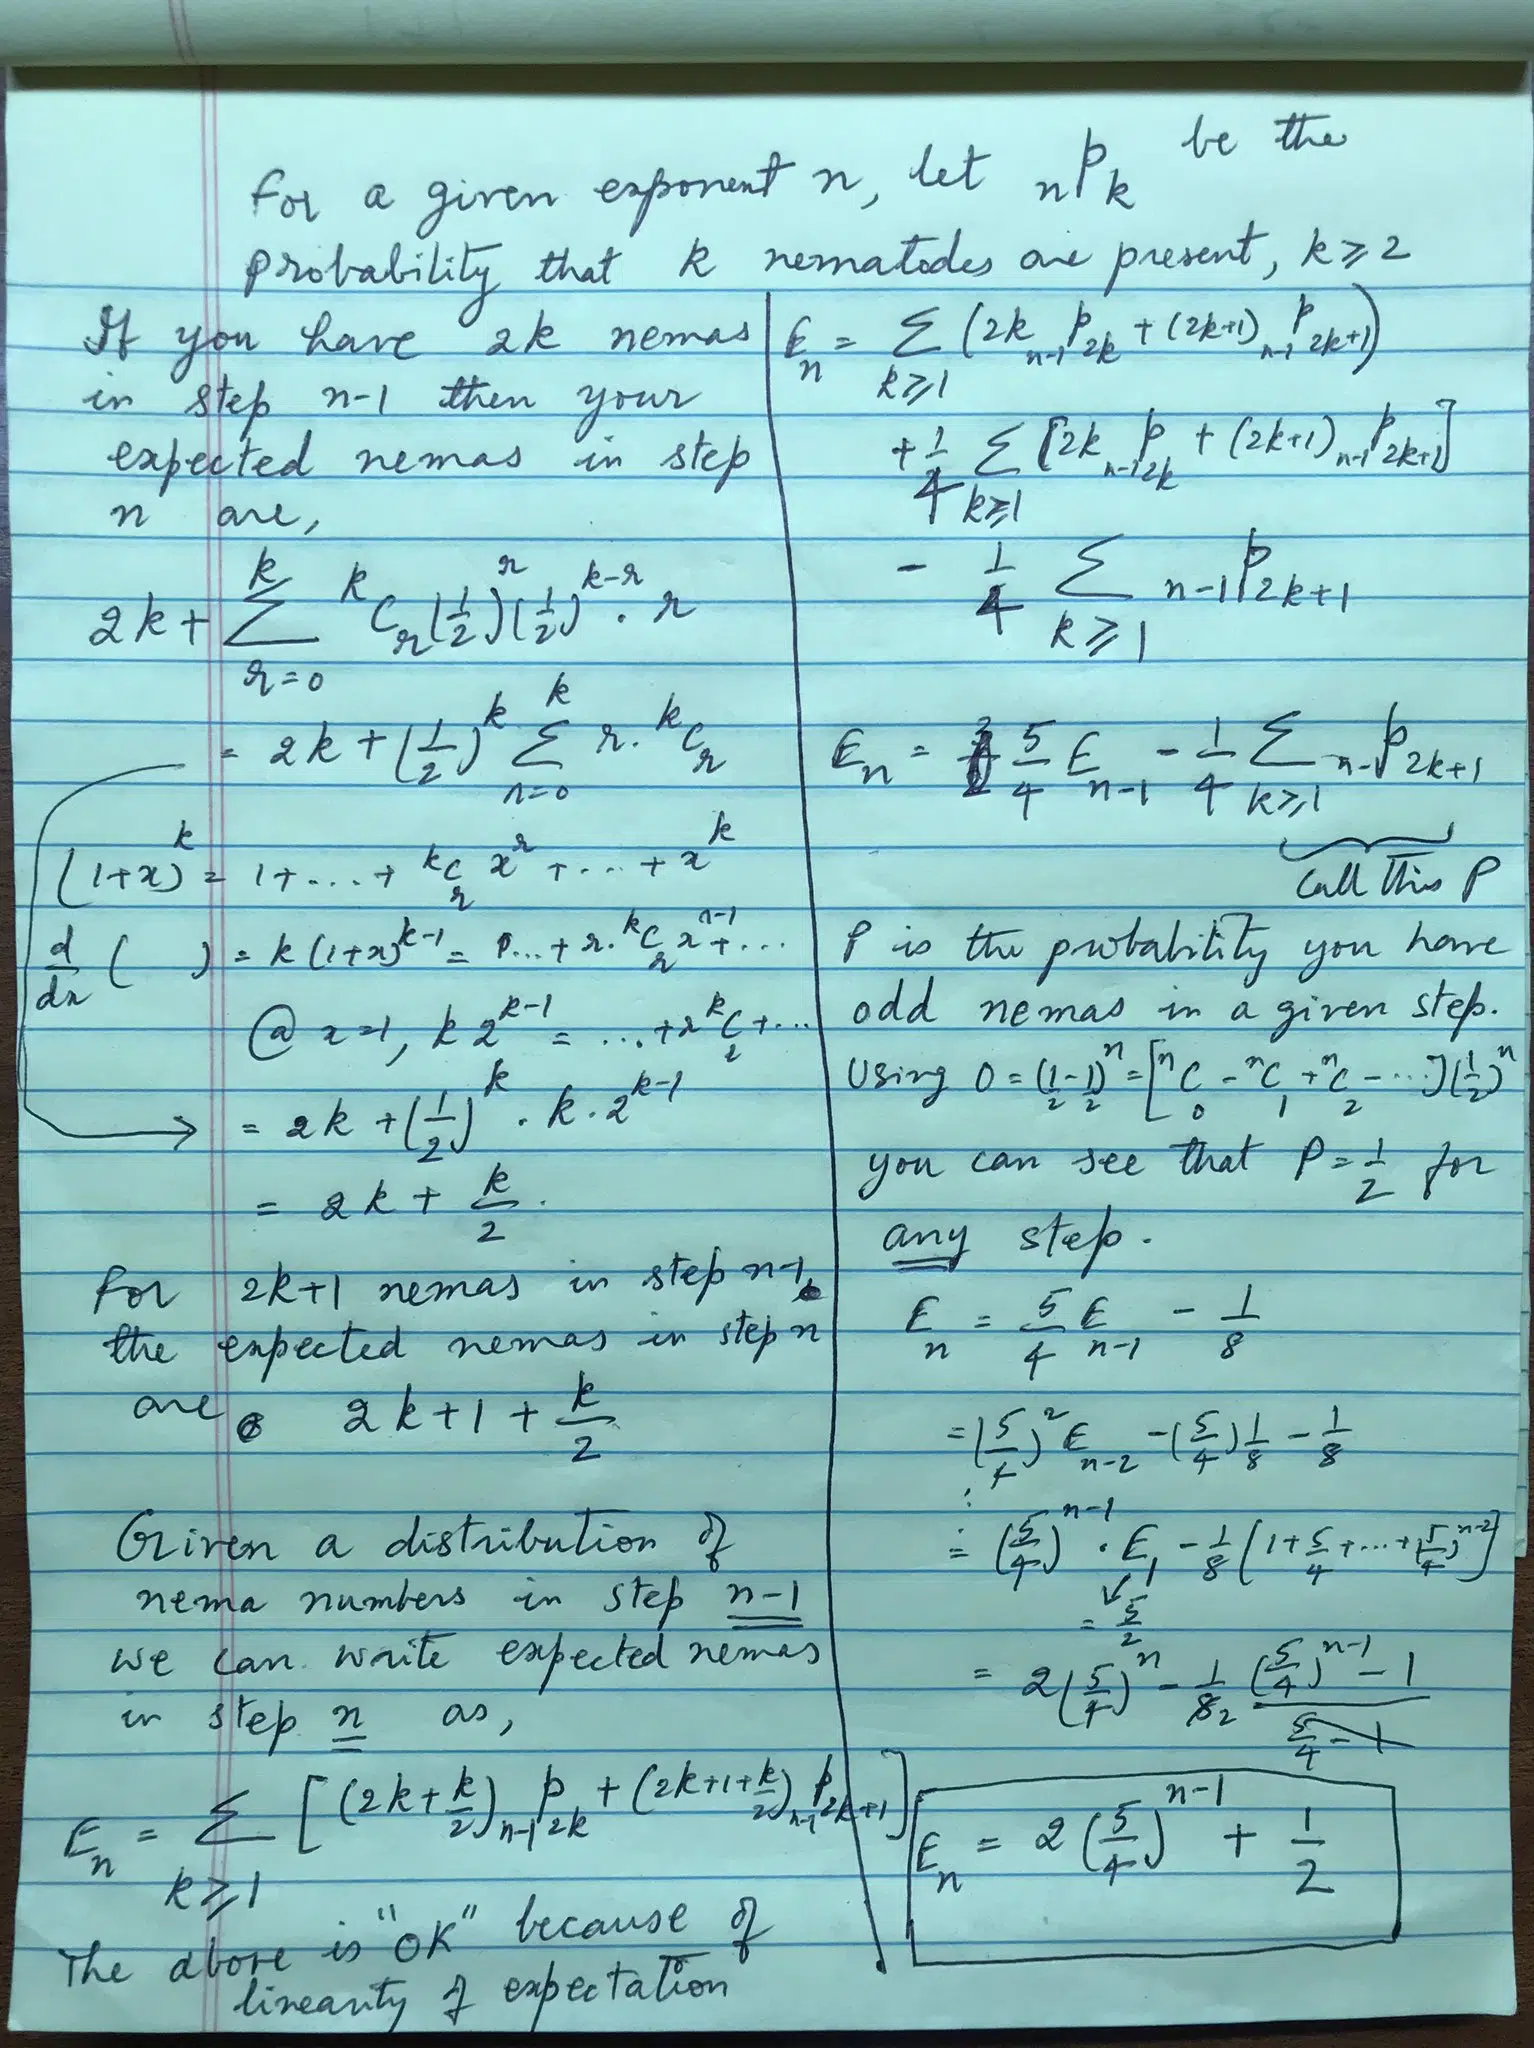 For a given exponent n, let ₙPₖ be the
probability that k nematodes are present, k ≥ 2
If you have 2k nemas
in step n-1 then your
expected nemas in step
n are,
2k + Σ_{r=0}^{k} ᵏC_r (1/2)^r (1/2)^{k-r} · r
= 2k + (1/2)^k Σ_{r=0}^{k} r · ᵏC_r
(1+x)^k = 1 + ... + ᵏC_r x^r + ... + x^k
d/dx ( ) = k(1+x)^{k-1} = ... + r · ᵏC_r x^{r-1} + ...
@ x=1, k 2^{k-1} = ... + r ᵏC_r + ...
= 2k + (1/2)^k · k · 2^{k-1}
= 2k + k/2 .
For 2k+1 nemas in step n-1,
the expected nemas in step n
are 2k+1 + k/2
Given a distribution of
nema numbers in step n-1
we can write expected nemas
in step n as,
E_n = Σ_{k≥1} [(2k + k/2) ₙ₋₁P_{2k} + (2k+1+k/2) ₙ₋₁P_{2k+1}]
The above is "OK" because of
linearity of expectation
E_n = Σ_{k≥1} (2k ₙ₋₁P_{2k} + (2k+1) ₙ₋₁P_{2k+1})
+ 1/4 Σ_{k≥1} [2k ₙ₋₁P_{2k} + (2k+1) ₙ₋₁P_{2k+1}]
- 1/4 Σ_{k≥1} ₙ₋₁P_{2k+1}
E_n = 5/4 E_{n-1} - 1/4 Σ_{k≥1} ₙ₋₁P_{2k+1}
Call this P
P is the probability you have
odd nemas in a given step.
Using 0 = (1/2 - 1/2)^n = [ⁿC_0 - ⁿC_1 + ⁿC_2 - ...](1/2)^n
you can see that P = 1/2 for
any step.
E_n = 5/4 E_{n-1} - 1/8
= (5/4)^2 E_{n-2} - (5/4) 1/8 - 1/8
⋮
= (5/4)^{n-1} · E_1 - 1/8 [1 + 5/4 + ... + (5/4)^{n-2}]
= 5/2
= 2(5/4)^n - 1/8 2 ((5/4)^{n-1} - 1)/(5/4 - 1)
E_n = 2 (5/4)^{n-1} + 1/2